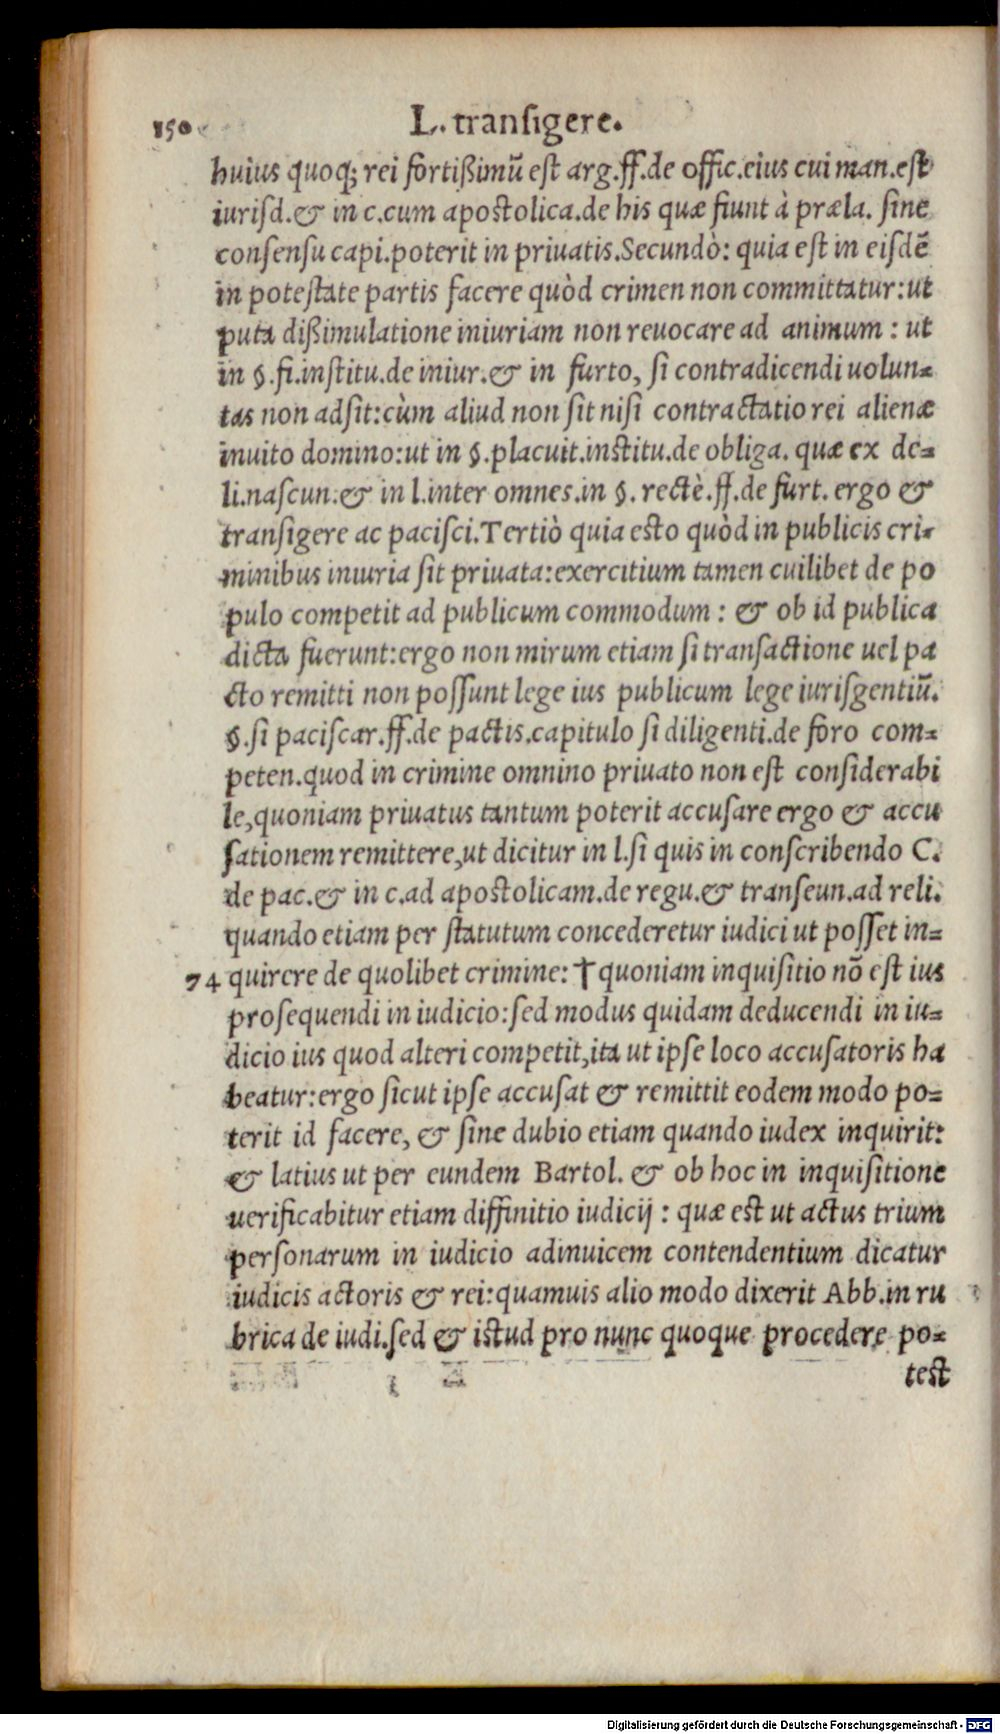 150
L. transigere.
huius quoq; rei fortißimũ est arg.ff.de offic.eius cui man.est
iurisd.& in c.cum apostolica.de his quæ fiunt à præla. sine
consensu capi.poterit in priuatis.Secundò: quia est in eisdẽ
in potestate partis facere quòd crimen non committatur:ut
puta dißimulatione iniuriam non reuocare ad animum : ut
in §.fi.institu.de iniur.& in furto, si contradicendi uolun-
tas non adsit:cùm aliud non sit nisi contractatio rei alienæ
inuito domino:ut in §.placuit.institu.de obliga. quæ ex de-
li.nascun:& in l.inter omnes.in §. rectè.ff.de furt. ergo &
transigere ac pacisci.Tertiò quia esto quòd in publicis cri-
minibus iniuria sit priuata:exercitium tamen cuilibet de po
pulo competit ad publicum commodum : & ob id publica
dicta fuerunt:ergo non mirum etiam si transactione uel pa
cto remitti non possunt lege ius publicum lege iurisgentiũ.
§.si paciscar.ff.de pactis.capitulo si diligenti.de foro com-
peten.quod in crimine omnino priuato non est considerabi
le,quoniam priuatus tantum poterit accusare ergo & accu
sationem remittere,ut dicitur in l.si quis in conscribendo C.
de pac.& in c.ad apostolicam.de regu.& transeun.ad reli.
quando etiam per statutum concederetur iudici ut posset in-
74 quirere de quolibet crimine: † quoniam inquisitio nõ est ius
prosequendi in iudicio:sed modus quidam deducendi in iu-
dicio ius quod alteri competit,ita ut ipse loco accusatoris ha
beatur:ergo sicut ipse accusat & remittit eodem modo po-
terit id facere, & sine dubio etiam quando iudex inquirit:
& latius ut per eundem Bartol. & ob hoc in inquisitione
uerificabitur etiam diffinitio iudicij : quæ est ut actus trium
personarum in iudicio adinuicem contendentium dicatur
iudicis actoris & rei:quamuis alio modo dixerit Abb.in ru
brica de iudi.sed & istud pro nunc quoque procedere po-
test
Digitalisierung gefördert durch die Deutsche Forschungsgemeinschaft - DFG